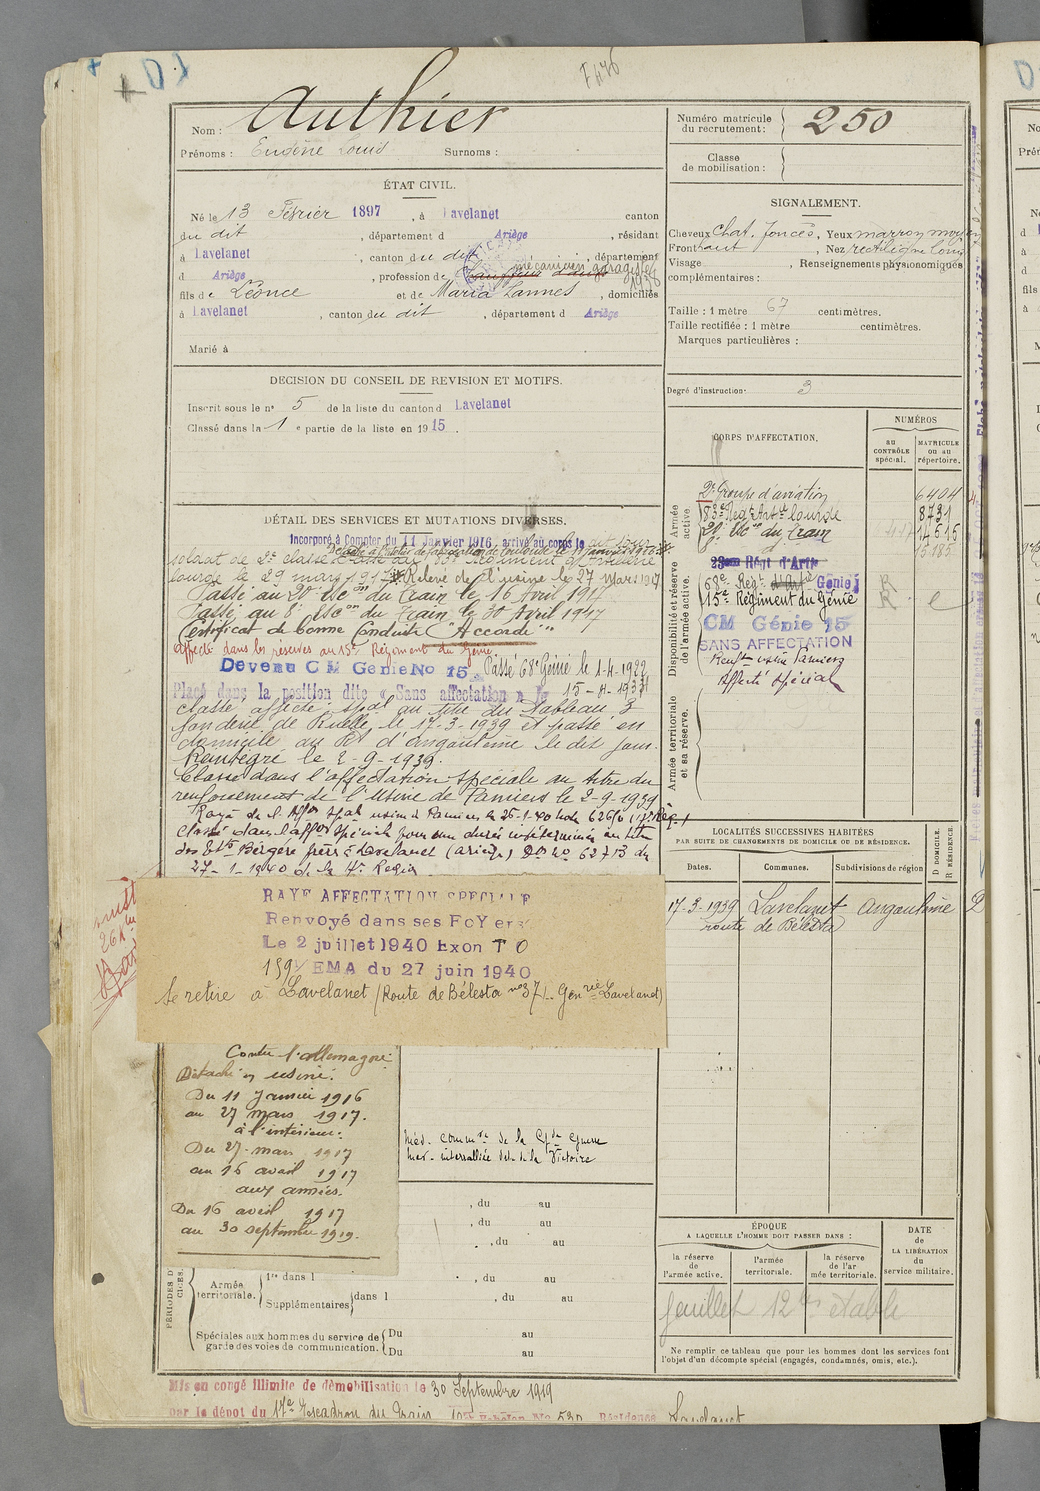 Nom : Authier
Prénoms : Eugène Louis Surnoms :
Numéro matricule du recrutement : 250
Classe de mobilisation :
ÉTAT CIVIL.
Né le 13 Février 1897, à Lavelanet canton
du dit, département d Ariège, résidant
à Lavelanet, canton du dit, département
d Ariège, profession de mécanicien garagiste
1936
fils de Léonce et de Maria Lannes, domiciliés
à Lavelanet, canton du dit, département d Ariège
Marié à
SIGNALEMENT.
Cheveux Chat. foncés, Yeux marron moyen
Front haut, Nez rectiligne long
Visage , Renseignements physionomiques
complémentaires :
Taille : 1 mètre 67 centimètres.
Taille rectifiée : 1 mètre centimètres.
Marques particulières :
Degré d'instruction : 3
DECISION DU CONSEIL DE REVISION ET MOTIFS.
Inscrit sous le n° 5 de la liste du canton d Lavelanet
Classé dans la 1e partie de la liste en 1915.
DÉTAIL DES SERVICES ET MUTATIONS DIVERSES.
Incorporé à Compter du 11 Janvier 1916, arrivé au corps le dit jour
soldat de 2e classe
lourde le 29 mars 1917 Relevé de l'usine le 27 Mars 1917
Passé au 20e Escon du Train le 16 Avril 1917
Passé au 8e Escon du Train le 30 Avril 1917
Certificat de bonne Conduite "Accordé"
affecté dans les reserves au 15e Régiment du Génie
Devenu C M Genie No 15. Passé 68e Génie le 1-4-1922
Placé dans la position dite « Sans affectation » le 15-
Classé affecté spal au titre du Tableau 3
fonderie de Ruelle le 17-3-1939 et passé en
domicile au Rt d'angoulême le dit jour.
Réintégré le 2-9-1939.
Classé dans l'affectation spéciale au titre du
renforcement de l'Usine de Pamiers le 2-9-1939
Rayé de l'Affon Spale usine à Pamiers le 26-1-40
Classé dans l'affon spéciale pour une durée indéterminée au titre
des Ets Bergère frères à Lavelanet (ariège) Don No 62713 du
27-1-1940 de la
RAYE AFFECTATION SPECIALE
Renvoyé dans ses FoYers
Le 2 juillet 1940 Exon T O
159/EMA du 27 juin 1940
Se retire à Lavelanet (Route de Bélesta no 37). Genrie Lavelanet)
Contre l'allemagne:
Détaché en usine:
Du 11 Janvier 1916
au 27 mars 1917.
à l'intérieur:
Du 27 mars 1917
au 16 avril 1917
aux armées.
Du 16 avril 1917
au 30 septembre 1919.
Méd. commve de la Gde Guerre
Med. interalliée dite de la Victoire
CORPS D'AFFECTATION.
NUMÉROS
au CONTRÔLE spécial.
MATRICULE ou au répertoire.
Armée active.
2e Groupe d'aviation 6404
83e Régt Artie lourde 8731
20e Escon du Train 14515
8e 15185
Disponibilité et réserve de l'armée active.
23ème Rég d'Arte
68e Régt Génie
15e Régiment du Génie
CM Génie 15
SANS AFFECTATION
Renft usine Pamiers
Affecté Spécial
Armée territoriale et sa réserve.
LOCALITÉS SUCCESSIVES HABITÉES
PAR SUITE DE CHANGEMENTS DE DOMICILE OU DE RÉSIDENCE.
Dates. Communes. Subdivisions de région D DOMICILE. R RÉSIDENCE.
17-3-1939 Lavelanet Angoulême D
route de Bélesta
ÉPOQUE
A LAQUELLE L'HOMME DOIT PASSER DANS :
la réserve de l'armée active.
l'armée territoriale.
la réserve de l'armée territoriale.
DATE de LA LIBÉRATION du service militaire.
feuillet 12 bis établi
Ne remplir ce tableau que pour les hommes dont les services font
l'objet d'un décompte spécial (engagés, condamnés, omis, etc.).
, du au
, du au
, du au
Armée territoriale. 1re dans l , du au
Supplémentaires dans l , du au
Spéciales aux hommes du service de garde des voies de communication. Du au
Du au
Mis en congé illimité de démobilisation le 30 Septembre 1919
par le dépot du 17e Escadron du Train Echelon No 530 Résidence Lavelanet